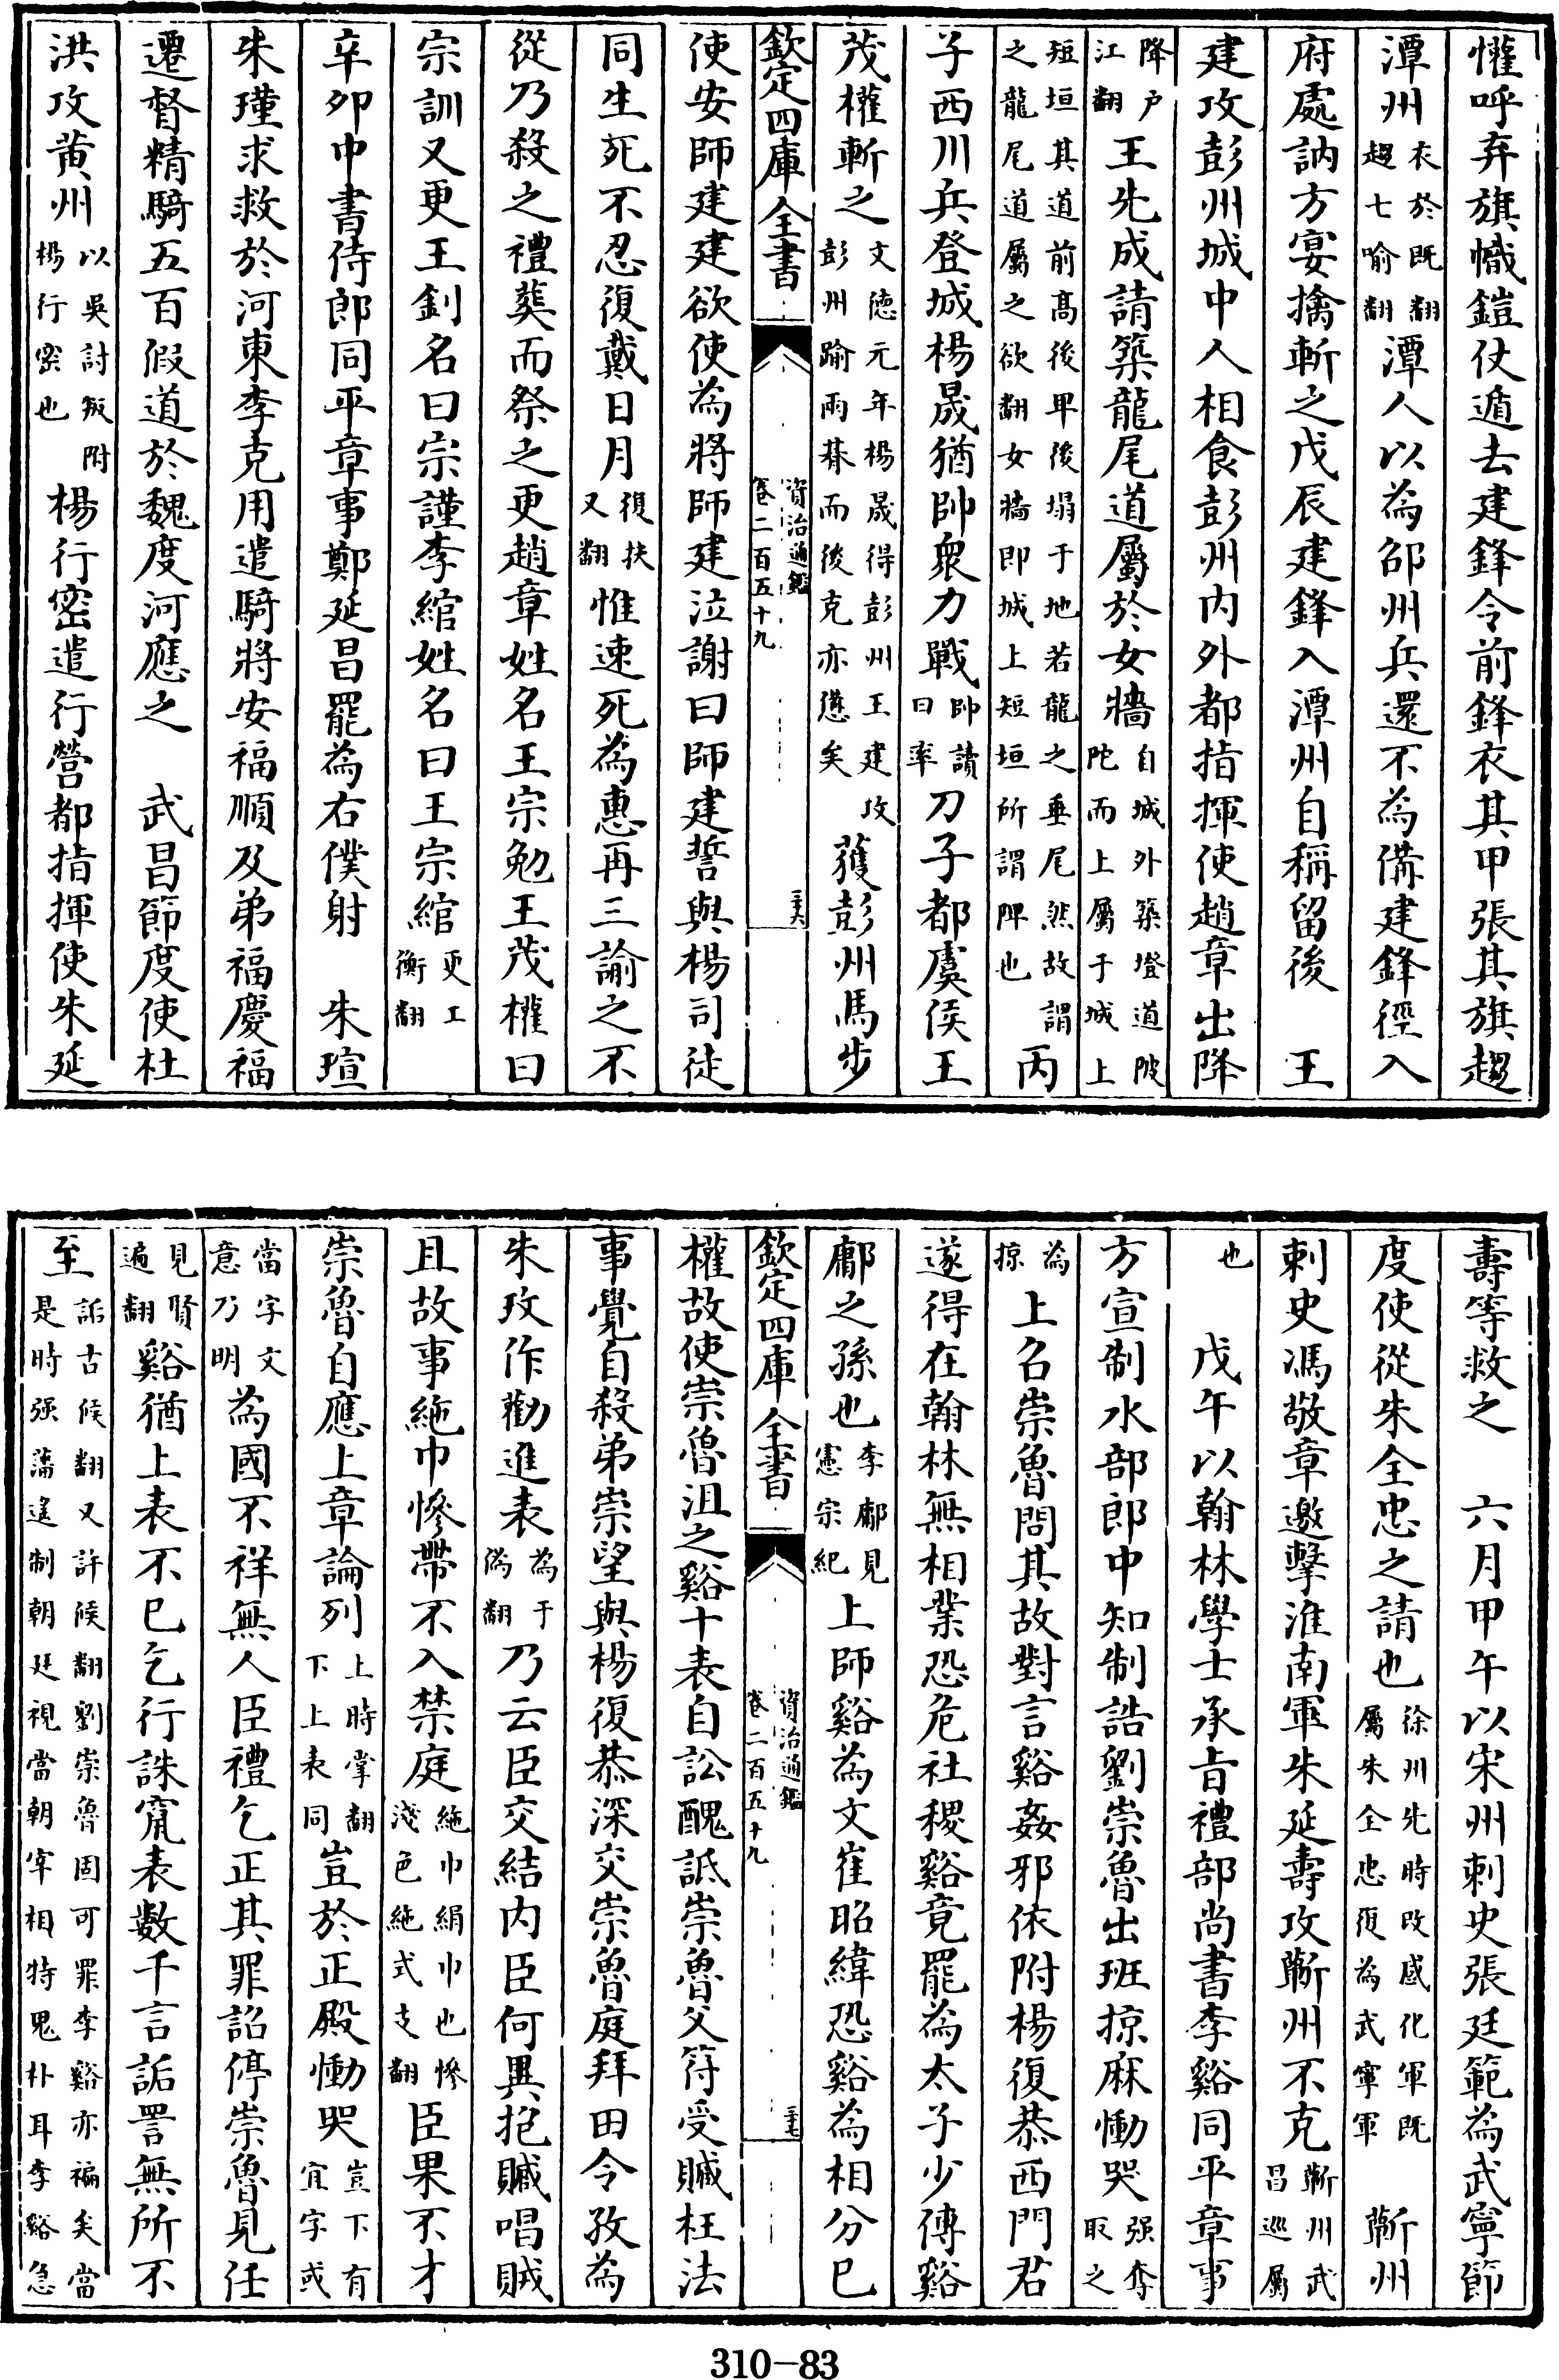 懽呼弃旗幟鎧仗遁去建鋒令前鋒衣其甲張其旗趨
潭州衣於既翻趨七喻翻潭人以為邵州兵還不為備建鋒徑入
府處訥方宴擒斬之戊辰建鋒入潭州自稱留後　王
建攻彭州城中人相食彭州内外都指揮使趙章出降
降户江翻王先成請築龍尾道屬於女牆自城外築墱道陂陀而上屬于城上
短垣其道前髙後卑後塌于地若龍之垂尾然故謂之龍尾道屬之欲翻女牆即城上短垣所謂陴也丙
子西川兵登城楊晟猶帥衆力戰帥讀曰率刀子都虞侯王
茂權斬之文德元年楊晟得彭州王建攻彭州踰兩朞而後克亦憊矣獲彭州馬步
欽定四庫全書　資治通鑑卷二百五十九　三六
使安師建建欲使為將師建泣謝曰師建誓與楊司徒
同生死不忍復戴日月復扶又翻惟速死為惠再三諭之不
從乃殺之禮葬而祭之更趙章姓名王宗勉王茂權曰
宗訓又更王釗名曰宗謹李綰姓名曰王宗綰更工衡翻
辛卯中書侍郎同平章事鄭延昌罷為右僕射　朱瑄
朱瑾求救於河東李克用遣騎將安福順及弟福慶福
遷督精騎五百假道於魏度河應之　武昌節度使杜
洪攻黄州以吳討叛附楊行密也楊行密遣行營都指揮使朱延
壽等救之　六月甲午以宋州刺史張廷範為武寧節
度使從朱全忠之請也徐州先時改感化軍既屬朱全忠復為武寧軍　蘄州
刺史馮敬章邀擊淮南軍朱延壽攻蘄州不克蘄州武昌巡屬
也　戊午以翰林學士承旨禮部尚書李谿同平章事
方宣制水部郎中知制誥劉崇魯出班掠麻慟哭强奪取之
為掠上名崇魯問其故對言谿姦邪依附楊復恭西門君
遂得在翰林無相業恐危社稷谿竟罷為太子少傅谿
鄘之孫也李鄘見憲宗紀上師谿為文崔昭緯恐谿為相分已
欽定四庫全書　資治通鑑卷二百五十九　三七
權故使崇魯沮之谿十表自訟醜詆崇魯父符受贓枉法
事覺自殺弟崇望與楊復恭深交崇魯庭拜田令孜為
朱玫作勸進表為于偽翻乃云臣交結内臣何異抱贓唱賊
且故事絁巾慘帶不入禁庭絁巾絹巾也慘淺色絁式支翻臣果不才
崇魯自應上章論列上時掌翻下上表同豈於正殿慟哭豈下有宜字或
當字文意乃明為國不祥無人臣禮乞正其罪詔停崇魯見任
見賢遍翻谿猶上表不已乞行誅竄表數千言詬詈無所不
至詬古候翻又許候翻劉崇魯固可罪李谿亦褊矣當是時强藩遙制朝廷視當朝宰相特鬼朴耳李谿急
310-83